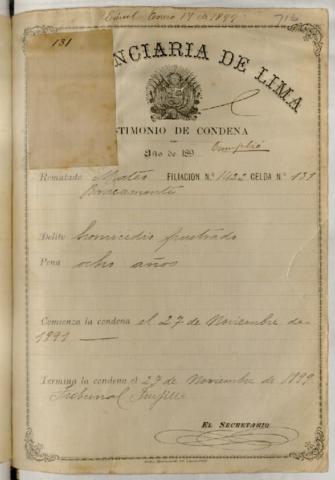 Enero 17 de 1899
716
131
NCIARIA DE LIMA
STIMONIO DE CONDENA
Cumplió
Año de 189
Rematado Mateo FILIACION N.º 1422 CELDA N.º 131
Bracamonte
Delito homicidio frustrado
Pena ocho años
Comienza la condena el 27 de Noviembre de
1891
Termina la condena el 27 de Noviembre de 1899
Tribunal Trujillo
EL SECRETARIO